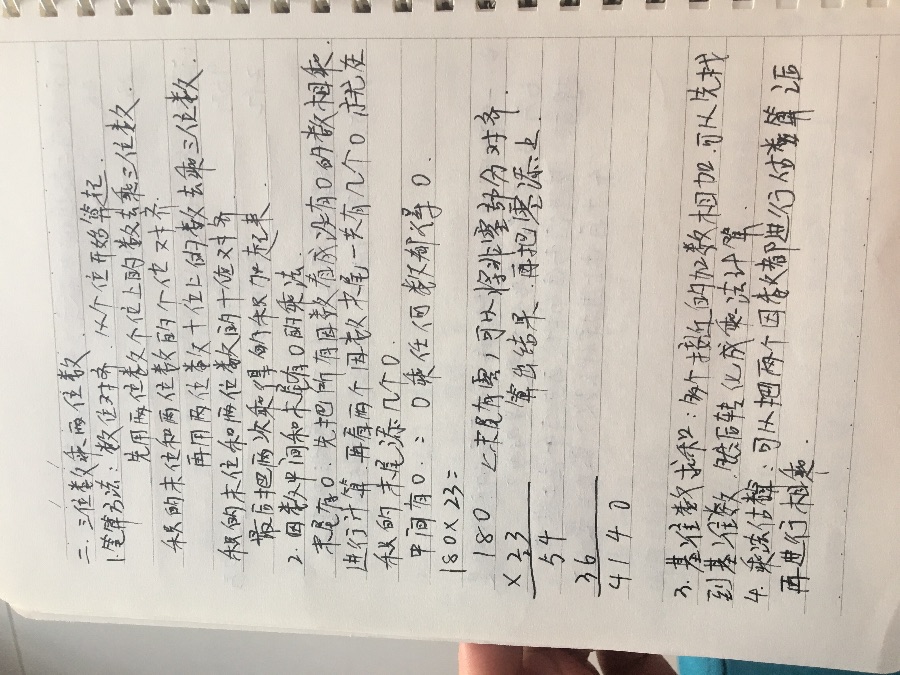 二、三位数乘两位数
1.笔算方法：数位对齐 从个位开始算起
先用两位数个位上的数去乘三位数.
积的末位和两位数的个位对齐.
再用两位数十位上的数去乘三位数
积的末位和两位数的十位对齐
最后把两次乘得的积加起来
2.因数中间和末尾有0的乘法
末尾有0：先把所有因数看成没有0的数相乘
进行计算 再看两个因数末尾一共有几个0就在
积的末尾添几个0.
中间有0：0乘任何数都得0.
180×23=
180 <末尾有零,可以将非零部分对齐.
×23 算出结果.再把零添上
54
36
4140
3.基准数求和:多个接近的加数相加.可以先找
到基准数.然后转化成乘法计算
4.乘法估算:可以把两个因数都进行估算
再进行相乘.